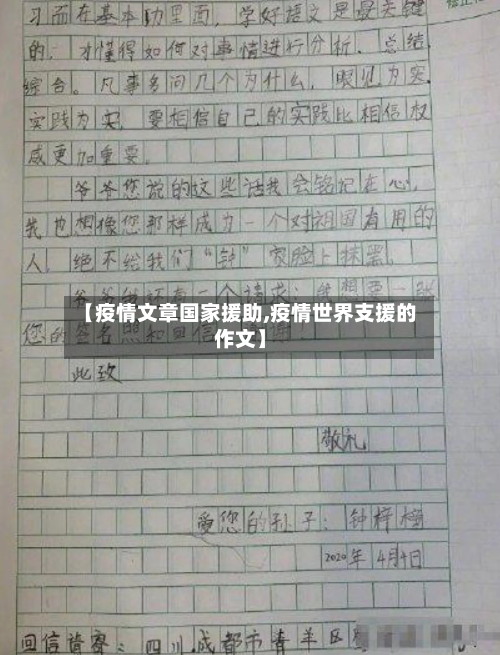 习而在基本功里面，学好语文是最关键
的，才懂得如何对事情进行分析、总结、
综合。凡事多问几个为什么，眼见为实，
实践为实，要相信自己的实践比相信权
威更加重要。
爷爷您说的这些话我会铭记在心，
我也想像您那样成为一个对祖国有用的
人，绝不给我们“钟”家脸上抹黑。
【疫情文章国家援助,疫情世界支援的
作文】
您的签名照和回信
此致
敬礼
爱您的孙子：钟梓
2020年4月4日
四川成都市青羊区